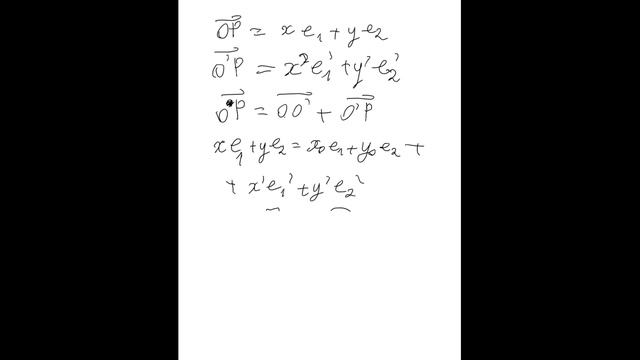 OP = x e₁ + y e₂
O'P = x' e₁' + y' e₂'
OP = OO' + O'P
x e₁ + y e₂ = x₀ e₁ + y₀ e₂ +
+ x' e₁' + y' e₂'